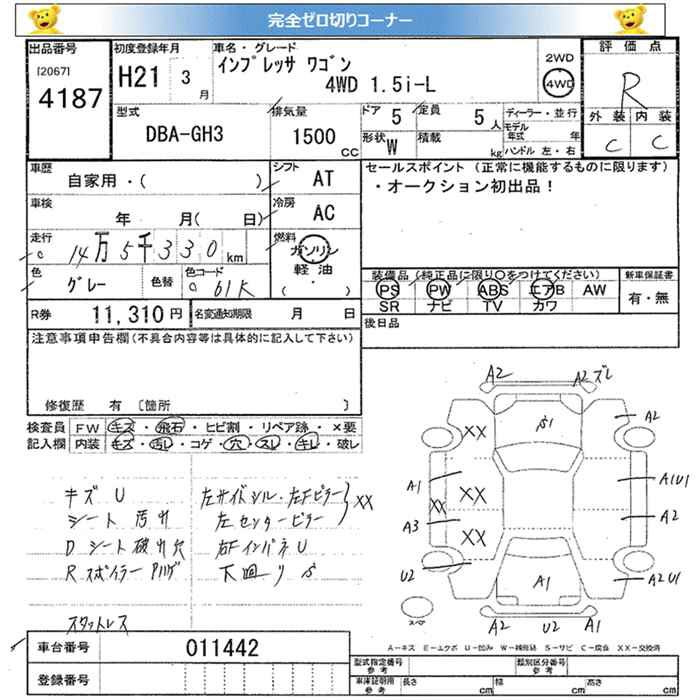 完全ゼロ切りコーナー
出品番号 初度登録年月 車名・グレード 評価点
[2067] 4187 H21 3月 インプレッサ ワゴン 4WD 1.5i-L 2WD 4WD R
型式 DBA-GH3 排気量 1500 CC ドア 5 定員 5人 ディーラー・並行 外装 内装
形状 W 積載 kg モデル年式 年 ハンドル 左・右 C C
車歴 自家用・( ) シフト AT セールスポイント (正常に機能するものに限ります)
・オークション初出品!
車検 年 月( 日) 冷房 AC
走行 14万5千330 km 燃料 ガソリン 軽油 ( ・ )
色 グレー 色替 色コード 61K
装備品 (純正品に限り○をつけてください) 新車保証書
PS PW ABS エアB AW 有・無
SR ナビ TV カワ
R券 11,310円 名変通知期限 月 日 後日品
注意事項申告欄(不具合内容等は具体的に記入して下さい)
修復歴 有 〔箇所 〕
検査員 FW キズ・飛石・ヒビ割・リペア跡・×要
記入欄 内装 キズ・汚レ・コゲ・穴・スレ・キレ・破レ
キズ U 左サイドシル・左Fピラー XX
シート 汚れ 左センターピラー
D シート破れ穴 右Fインパネ U
R スポイラー ハゲ 下廻り S
スタットレス
A2 A2 ズレ
XX S1 A2
A1 XX XX A1U1
A3 XX A2
U2 A1 A2U1
スペア A2 U2 A1
A-キズ E-エクボ U-凹み W-補修跡 S-サビ C-腐食 XX-交換済
車台番号 011442
登録番号
型式指定番号 参考 類別区分番号 参考
車庫証明用 参考 長さ cm 幅 cm 高さ cm